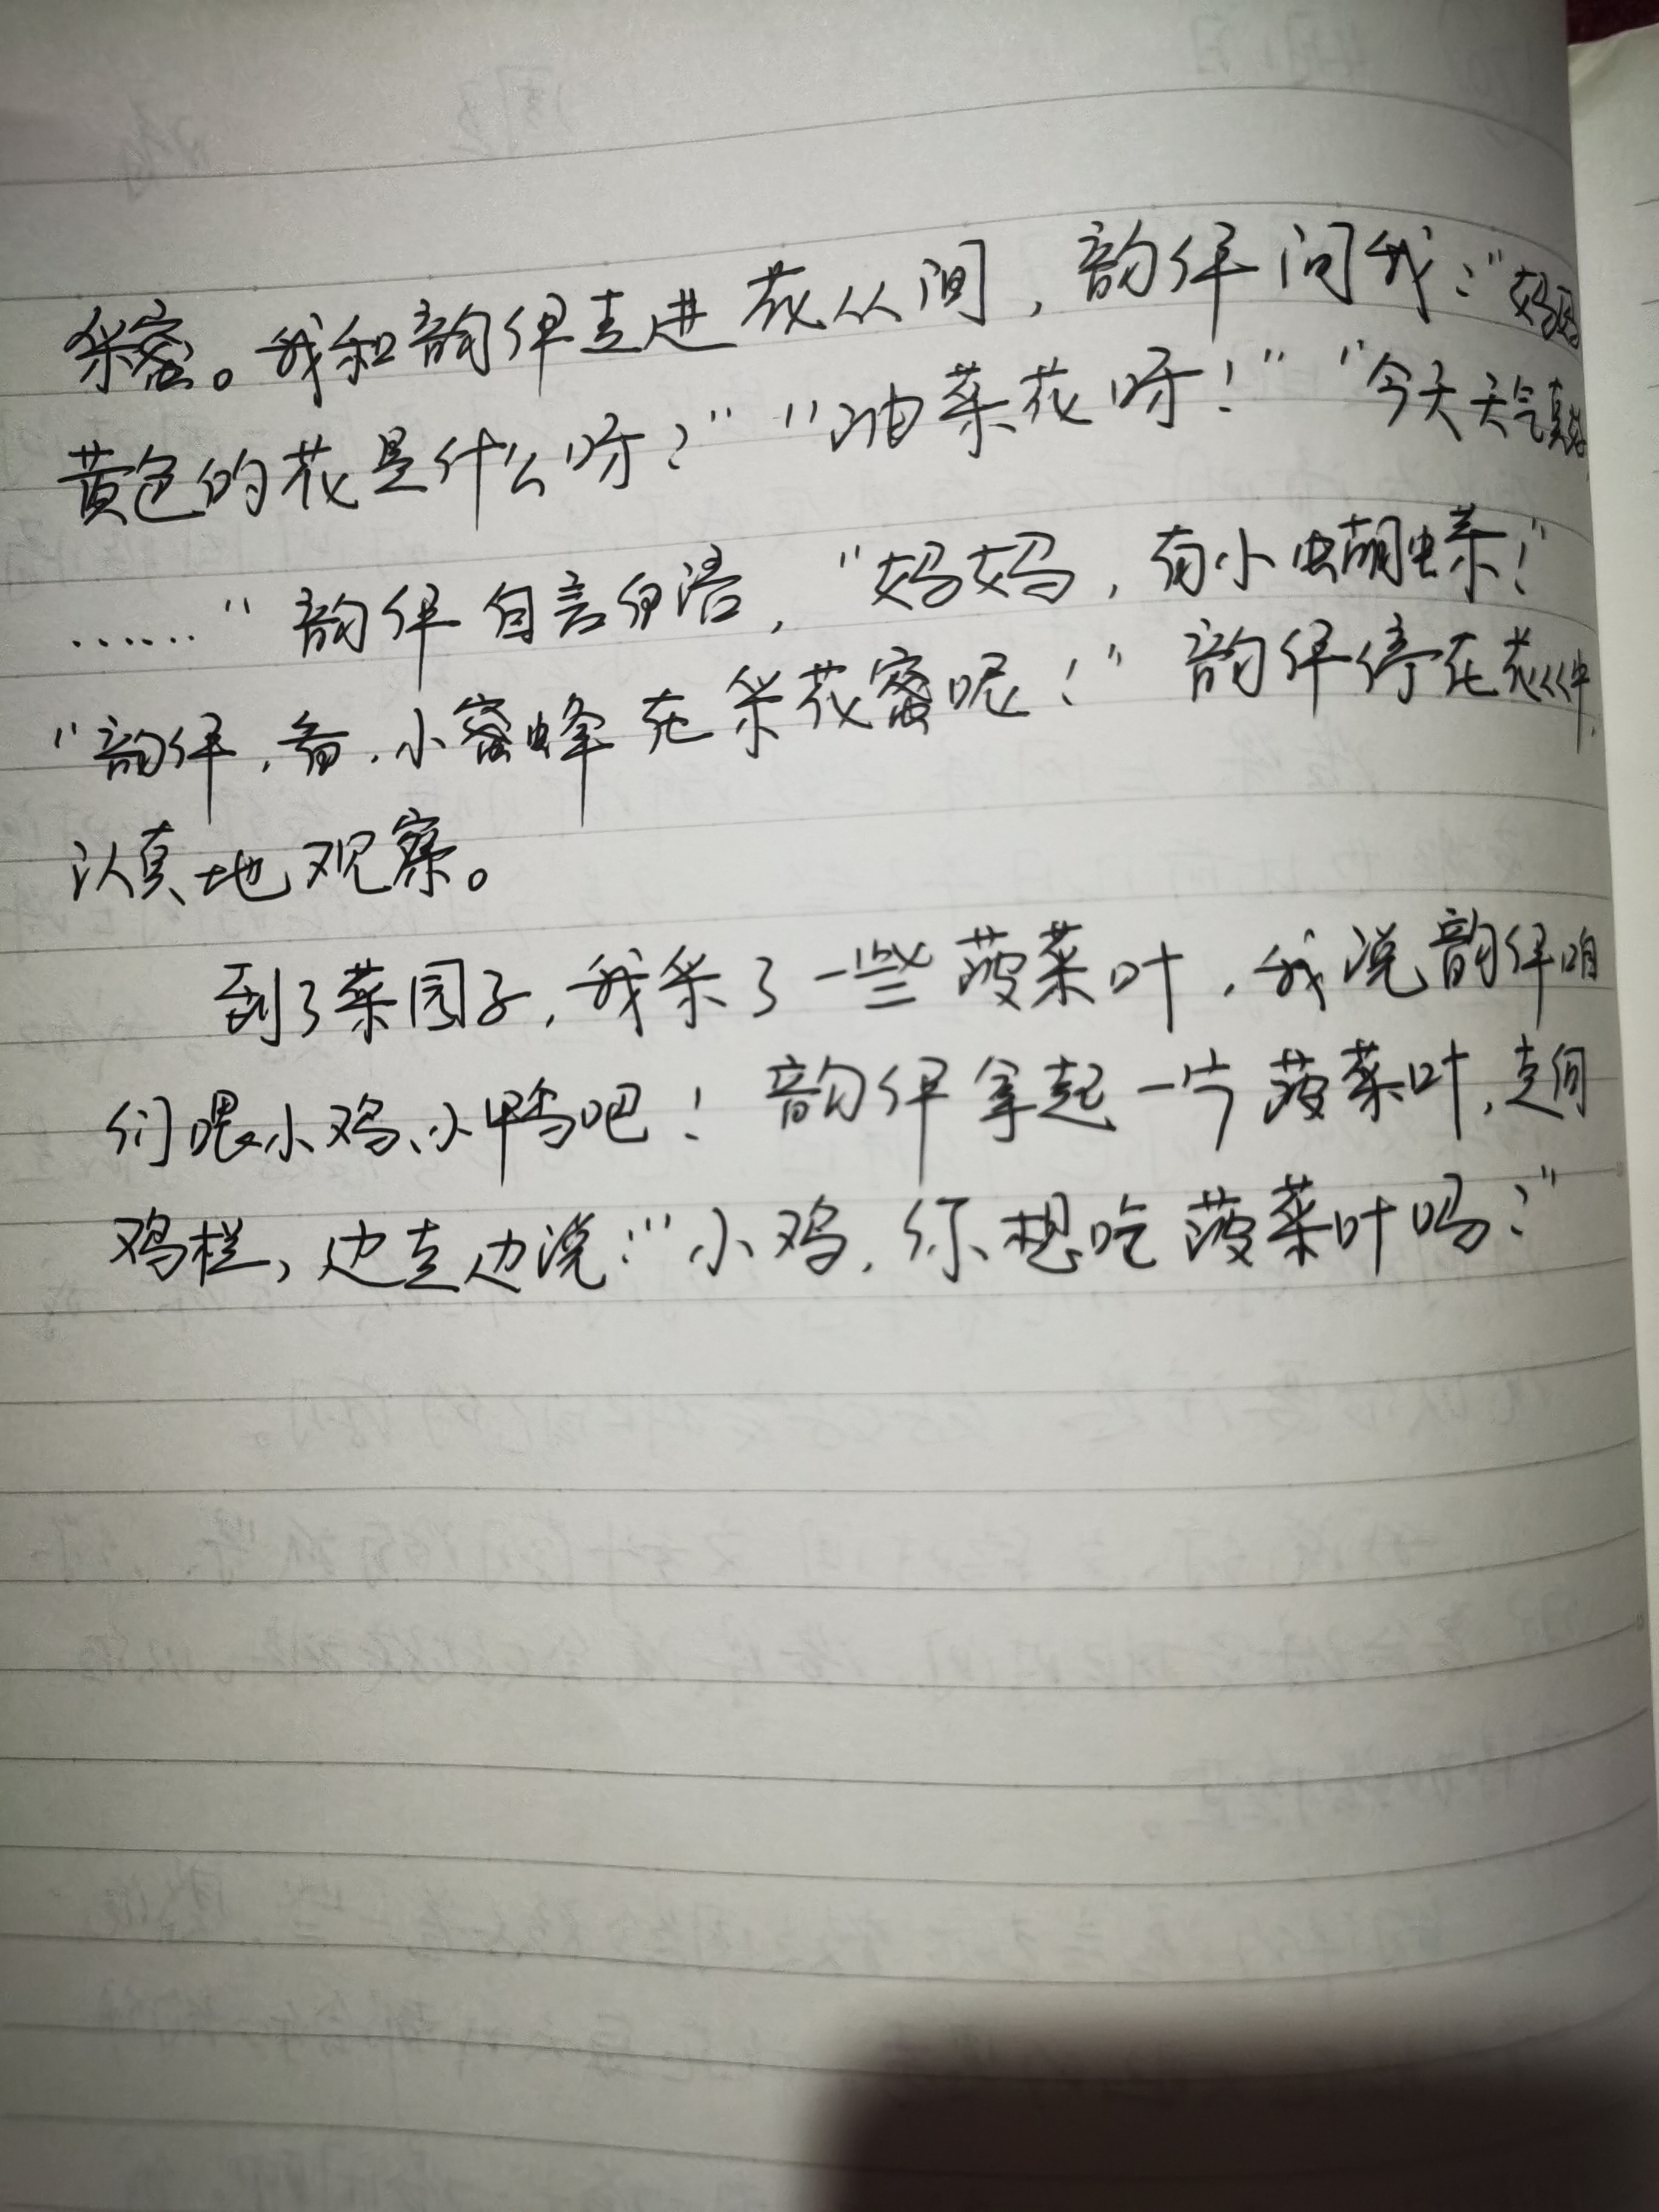 采蜜。我和韵伊走进花丛间，韵伊问我：“妈妈
黄色的花是什么呀？”“油菜花呀！”“今天天气真好
……”韵伊自言自语，“妈妈，有小蝴蝶！”
“韵伊，看，小蜜蜂在采花蜜呢！”韵伊停在花丛中，
认真地观察。
到了菜园子，我采了一些菠菜叶，我说韵伊咱
们喂小鸡、小鸭吧！韵伊拿起一片菠菜叶，走向
鸡栏，边走边说：“小鸡，你想吃菠菜叶吗？”